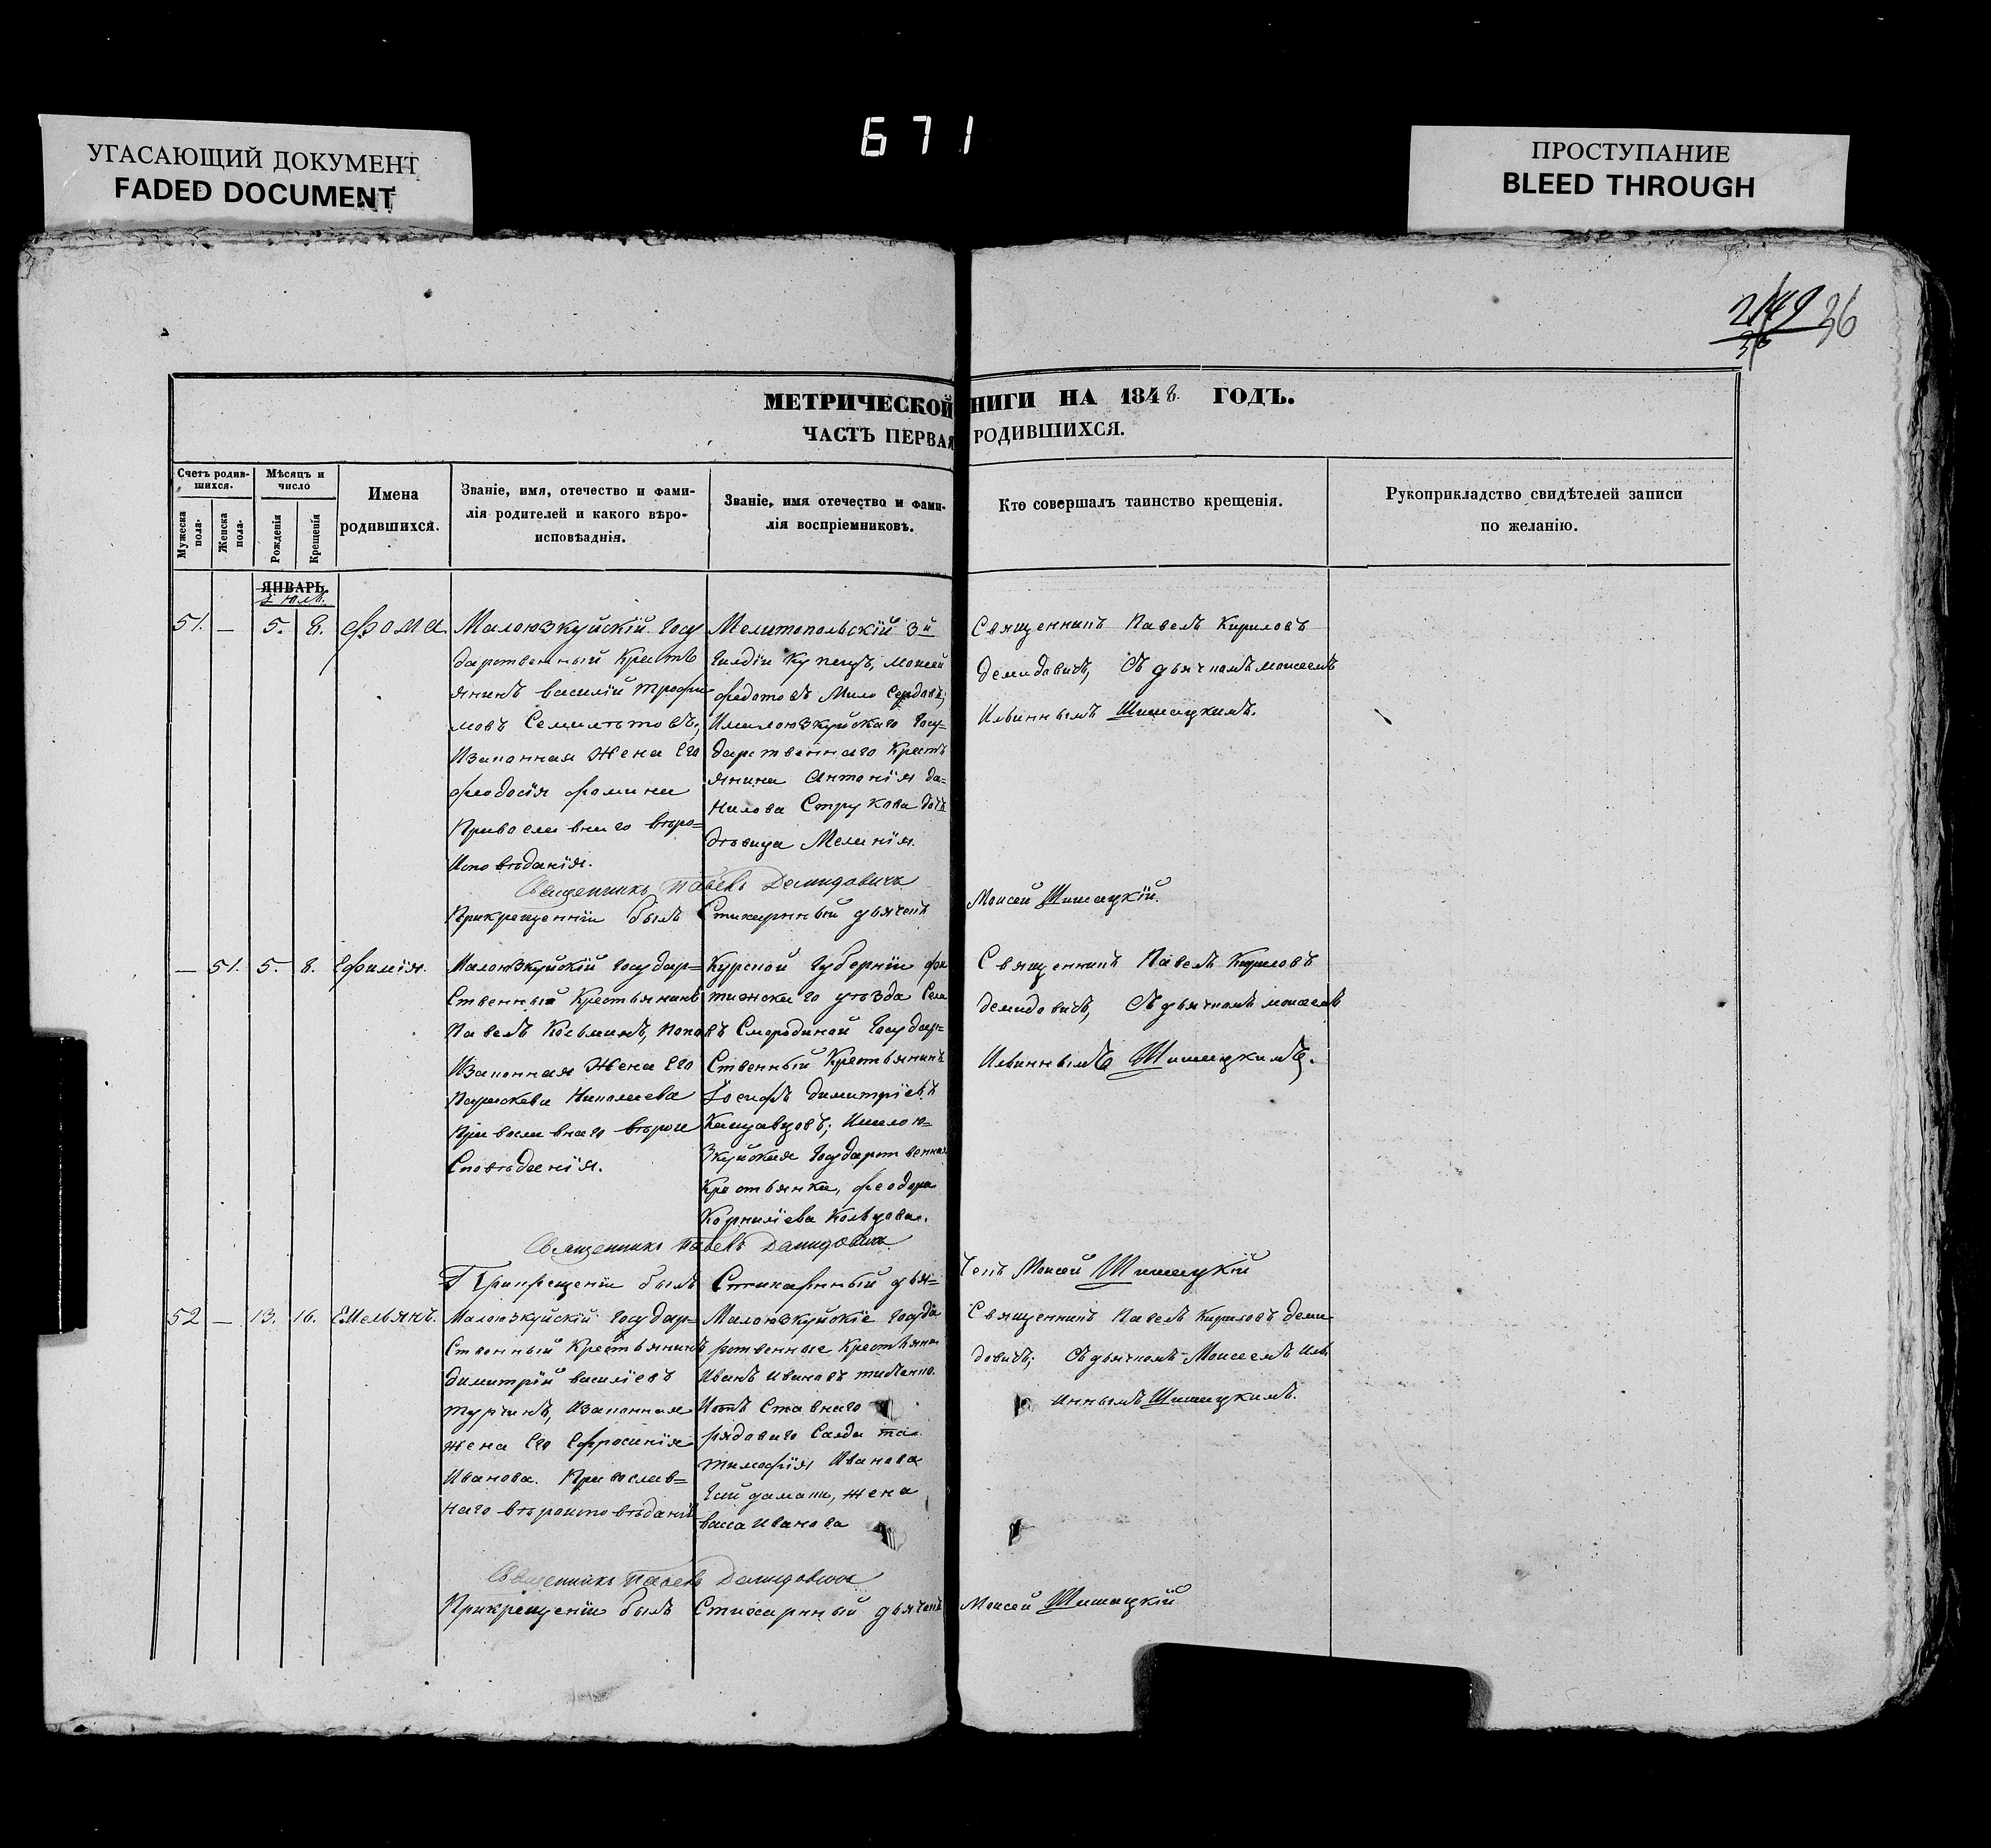 671
УГАСАЮЩИЙ ДОКУМЕНТ
FADED DOCUMENT
ПРОСТУПАНИЕ
BLEED THROUGH
36
МЕТРИЧЕСКОЙ НИГИ НА 1848 ГОДЪ.
ЧАСТЬ ПЕРВАЯ РОДИВШИХСЯ.
Счетъ родив-
шихся.
Мужеска
пола.
Женска
пола.
Мѣсяцъ и
число
Рожденія
Крещенія
Имена
родившихся.
Званіе, имя, отечество и фами-
лія родителей и какого вѣро-
исповѣаднія.
Званіе, имя отечество и фами-
лія воспріемниковъ.
Кто совершалъ таинство крещенія.
Рукоприкладство свидѣтелей записи
по желанію.
ЯНВАРЬ.
Іюль.
51. — 5. 8. Фома
Малоюзкуйскій Госу
дарственный Крестъ
янинъ василій Трофи
мовъ Семилѣтовъ,
Изаконная Жена Его
феодосія фомина
Православнаго вѣро=
Исповѣданія.
Мелитопольскій 3й
Гилдіи Купецъ, Моисей
федотовъ Мило Сердовъ,
Ималоюзкуйскаго Госу=
дарственнаго Крестъ
янина Антонія Да=
нилова Струкова дочь
дѣвица Меланія.
Священникъ Павелъ Кириловъ
Демидовичъ, Съ дьячкомъ моисеемъ
Ильиннымъ Шишацкимъ.
Священникъ Павелъ Демидовичъ
Прикрещеніи былъ Стихарный дьячекъ
Моисей Шишацкій.
— 51. 5. 8. Ефимія.
Малоюзкуйскій Государ=
Ственный Крестьянинъ
Павелъ Косьминъ, Поповъ
Изаконная Жена Его
Параскева Николаева
Православнаго вѣрои
Сповѣданія.
Курской Губерніи фа
тижскаго уѣзда Села
Смородиной Государ=
Ственный Крестьянинъ
Іосифъ димитріевъ
Канцавцовъ; Имало ю=
Зкуйская Государственная
Крестьянка, феодора
Корниліева Кольцова.
Священникъ Павелъ Кириловъ
демидовичъ, Съ дьячкомъ моисеемъ
Ильиннымъ Шишацкимъ.
Священникъ Павелъ Демидовичъ
Прикрещеніи былъ Стихарный дья=
чекъ Моисей Шишацкій
52 — 13. 16. Емельянъ.
Малоюзкуйскій Государ=
Ственный Крестьянинъ
димитрій василіевъ
турчинъ, Изаконная
жена Его Ефросинія
Иванова. Православ=
наго вѣроисповѣданія
Малоюзкуйскіе Госуда
рственные Крестьяни
Иванъ Ивановъ
Иотъ Ставнаго
рядоваго Салда та
тимофія Иванова
Гайдамаки, жена
васа Иванова
Священникъ Павелъ Кириловъ Деми
довичъ; Съ дьячкомъ Моисеемъ Иль
иннымъ Шишацкимъ.
Священникъ Павелъ Демидовичъ
Прикрещеніи былъ Стихарный дьячекъ
Моисей Шишацкій